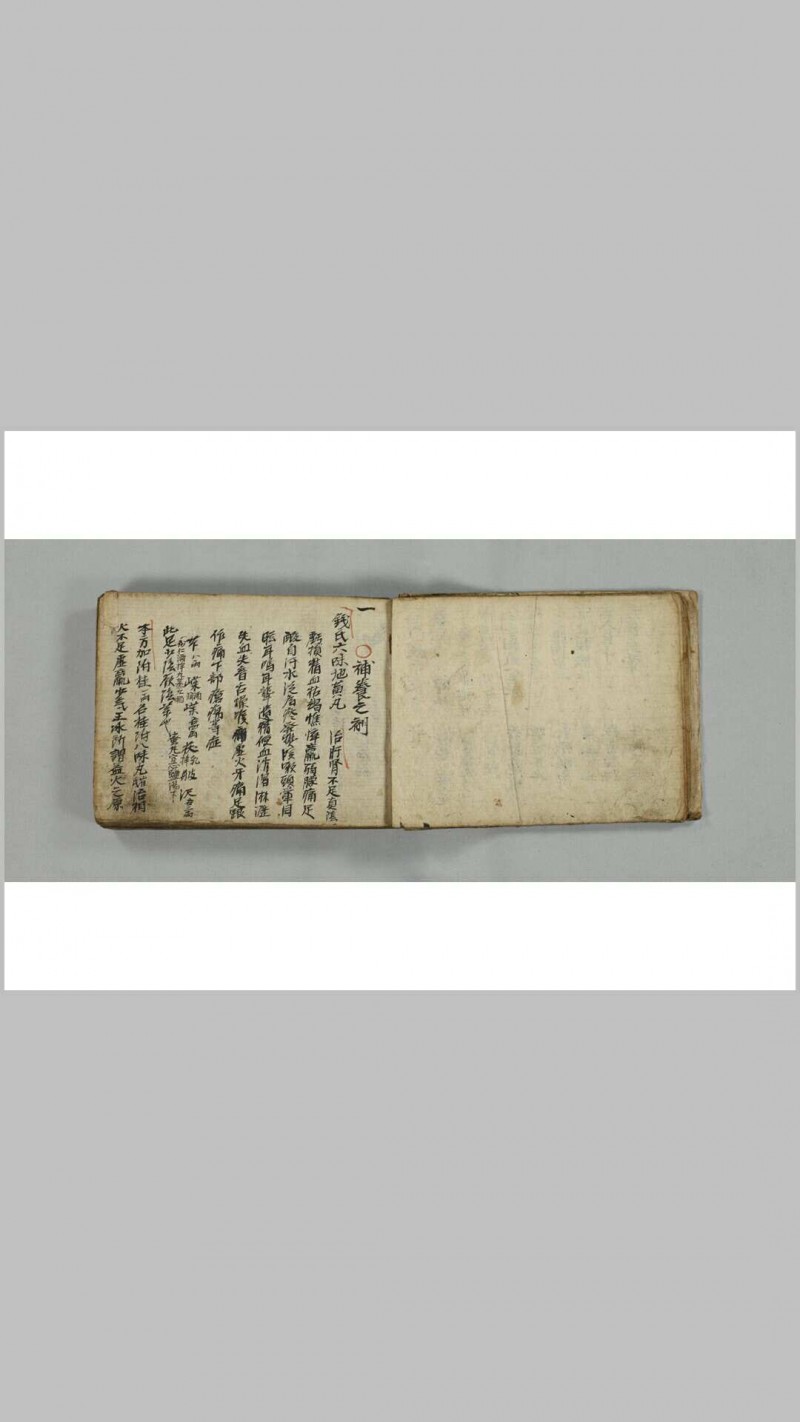 一
補養之剤
錢氏六味地黃凡 治肝肾不足真陰
虧損精血枯竭憔悴羸弱腰痛足
酸自汗水泛為痰發熱咳嗽頭暈目
眩耳鳴耳聾遺精便血消渴淋瀝
失血失音舌燥喉痛虛火牙痛足跟
作痛下部瘡瘍等症
此足少陰厥陰藥也
本方加附桂一兩名桂附八味丸脂治相
火不足虛羸少氣王冰所謂益火之原